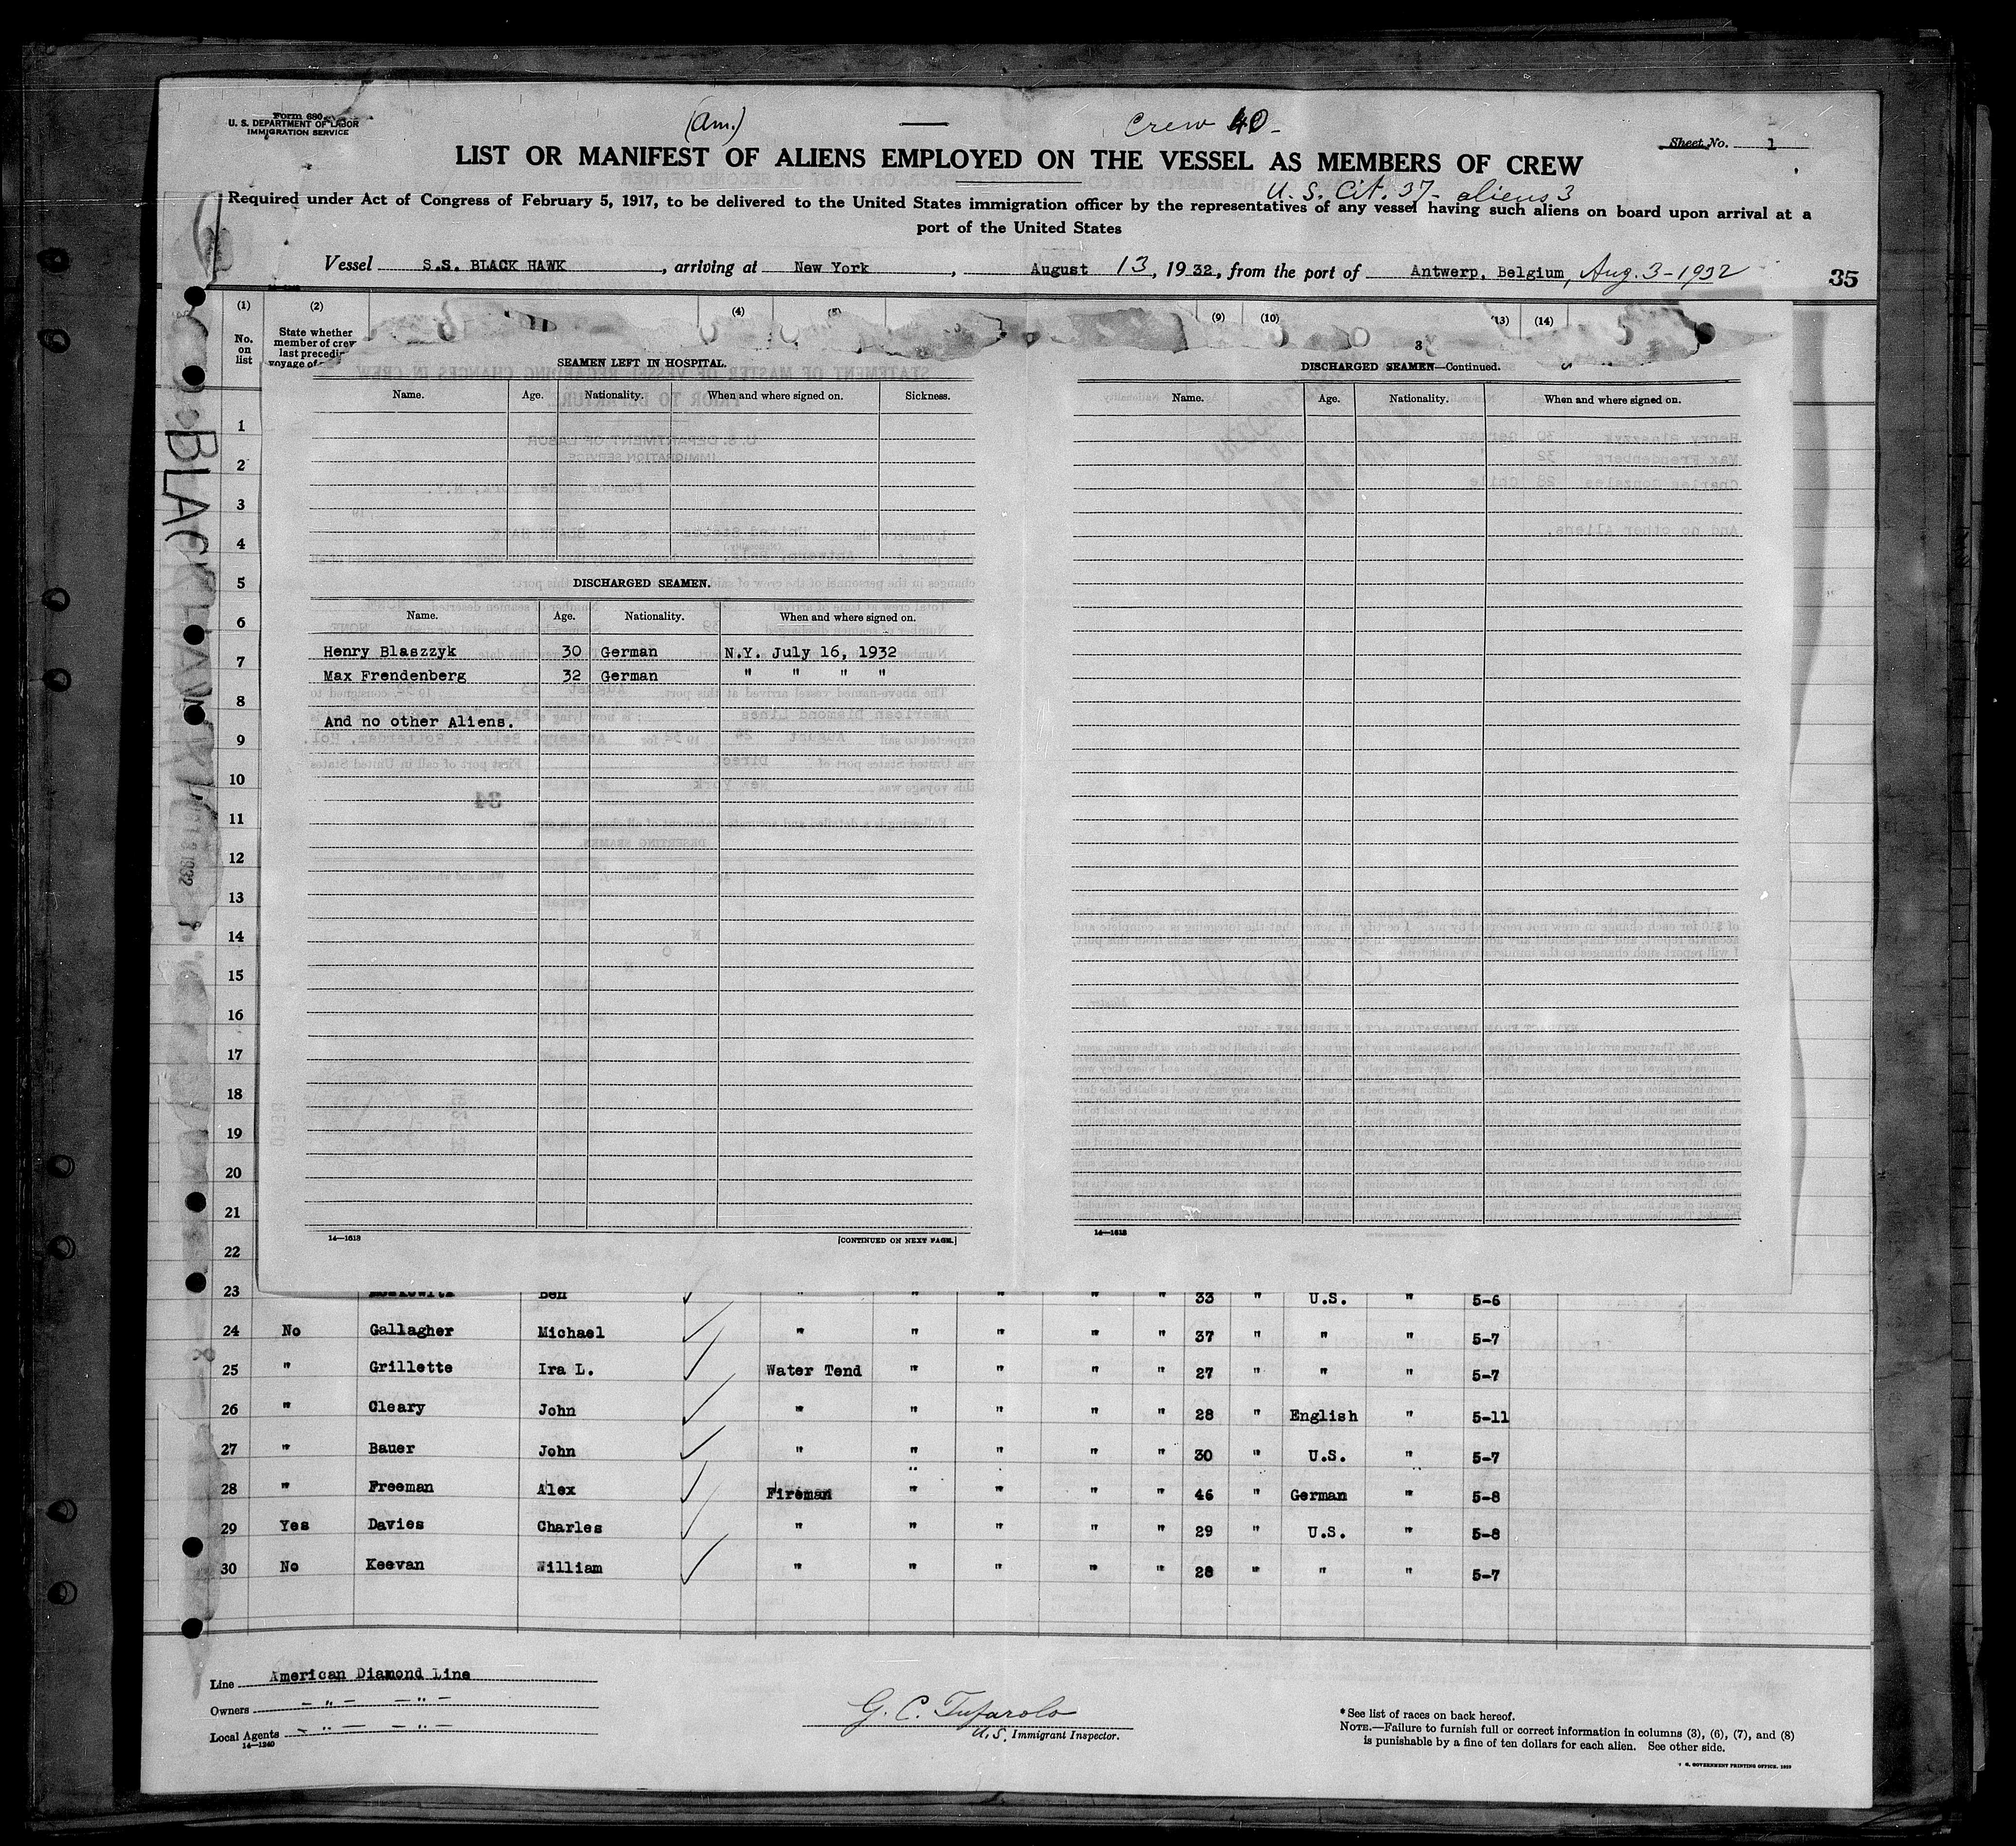 Form 680
U. S. DEPARTMENT OF LABOR
IMMIGRATION SERVICE
(Am.)
Crew 40-
Sheet No. 1
LIST OR MANIFEST OF ALIENS EMPLOYED ON THE VESSEL AS MEMBERS OF CREW
U. S. Cit. 37- aliens 3
Required under Act of Congress of February 5, 1917, to be delivered to the United States immigration officer by the representatives of any vessel having such aliens on board upon arrival at a
port of the United States
Vessel S.S. BLACK HAWK, arriving at New York, August 13, 1932, from the port of Antwerp, Belgium, Aug. 3-1932
35
(1) (2) (4) (5) (9) (10) (13) (14)
No. on list
State whether
member of crew
last preceding
voyage of
BLACK HAWK
SEAMEN LEFT IN HOSPITAL.
Name. Age. Nationality. When and where signed on. Sickness.
DISCHARGED SEAMEN.
Name. Age. Nationality. When and where signed on.
Henry Blaszzyk 30 German N.Y. July 16, 1932
Max Frendenberg 32 German " " " "
And no other Aliens.
14—1613
[CONTINUED ON NEXT PAGE.]
3
DISCHARGED SEAMEN—Continued.
Name. Age. Nationality. When and where signed on.
14—1613
1
2
3
4
5
6
7
8
9
10
11
12
13
14
15
16
17
18
19
20
21
22
23 Moskowitz Ben " " " " " 33 " U.S. " 5-6
24 No Gallagher Michael " " " " " 37 " " " 5-7
25 " Grillette Ira L. Water Tend " " " " 27 " " " 5-7
26 " Cleary John " " " " " 28 " English " 5-11
27 " Bauer John " " " " " 30 " U.S. " 5-7
28 " Freeman Alex Fireman " " " " 46 " German " 5-8
29 Yes Davies Charles " " " " " 29 " U.S. " 5-8
30 No Keevan William " " " " " 28 " " " 5-7
Line American Diamond Line
Owners — " — — " —
Local Agents — " — — " —
14—1240
G. C. Tufarolo
U.S. Immigrant Inspector.
* See list of races on back hereof.
NOTE.—Failure to furnish full or correct information in columns (3), (6), (7), and (8)
is punishable by a fine of ten dollars for each alien. See other side.
GOVERNMENT PRINTING OFFICE. 1929